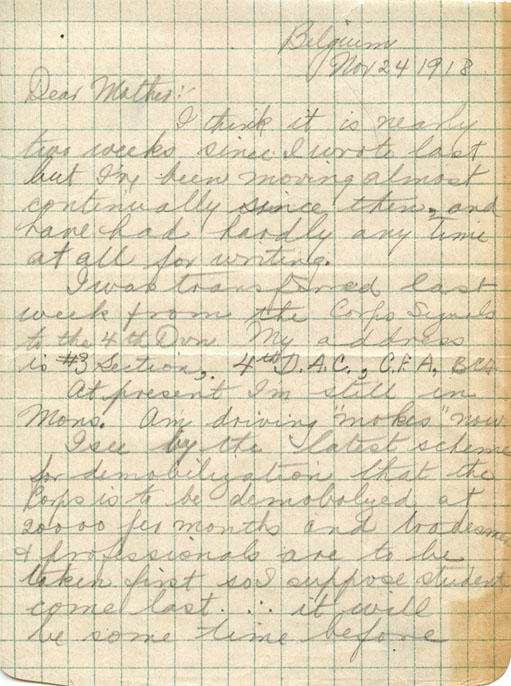 Belgium
Nov 24 1918
Dear Mother:-
I think it is nearly
two weeks since I wrote last
but I've been moving almost
continually since then, and
have had hardly any time
at all for writing.
I was transferred last
week from the Corps Signals
to the 4th Dvn. My address
is #3 Section, 4th D.A.C., C.F.A,
At present I'm still in
Mons. Am driving "mokes" now.
I see by the latest scheme
for demobilization that the
Corps is to be demobolyed at
20000 per months and tradesmen
& professionals are to be
taken first so I suppose student
come last. ∴ it will
be some time before